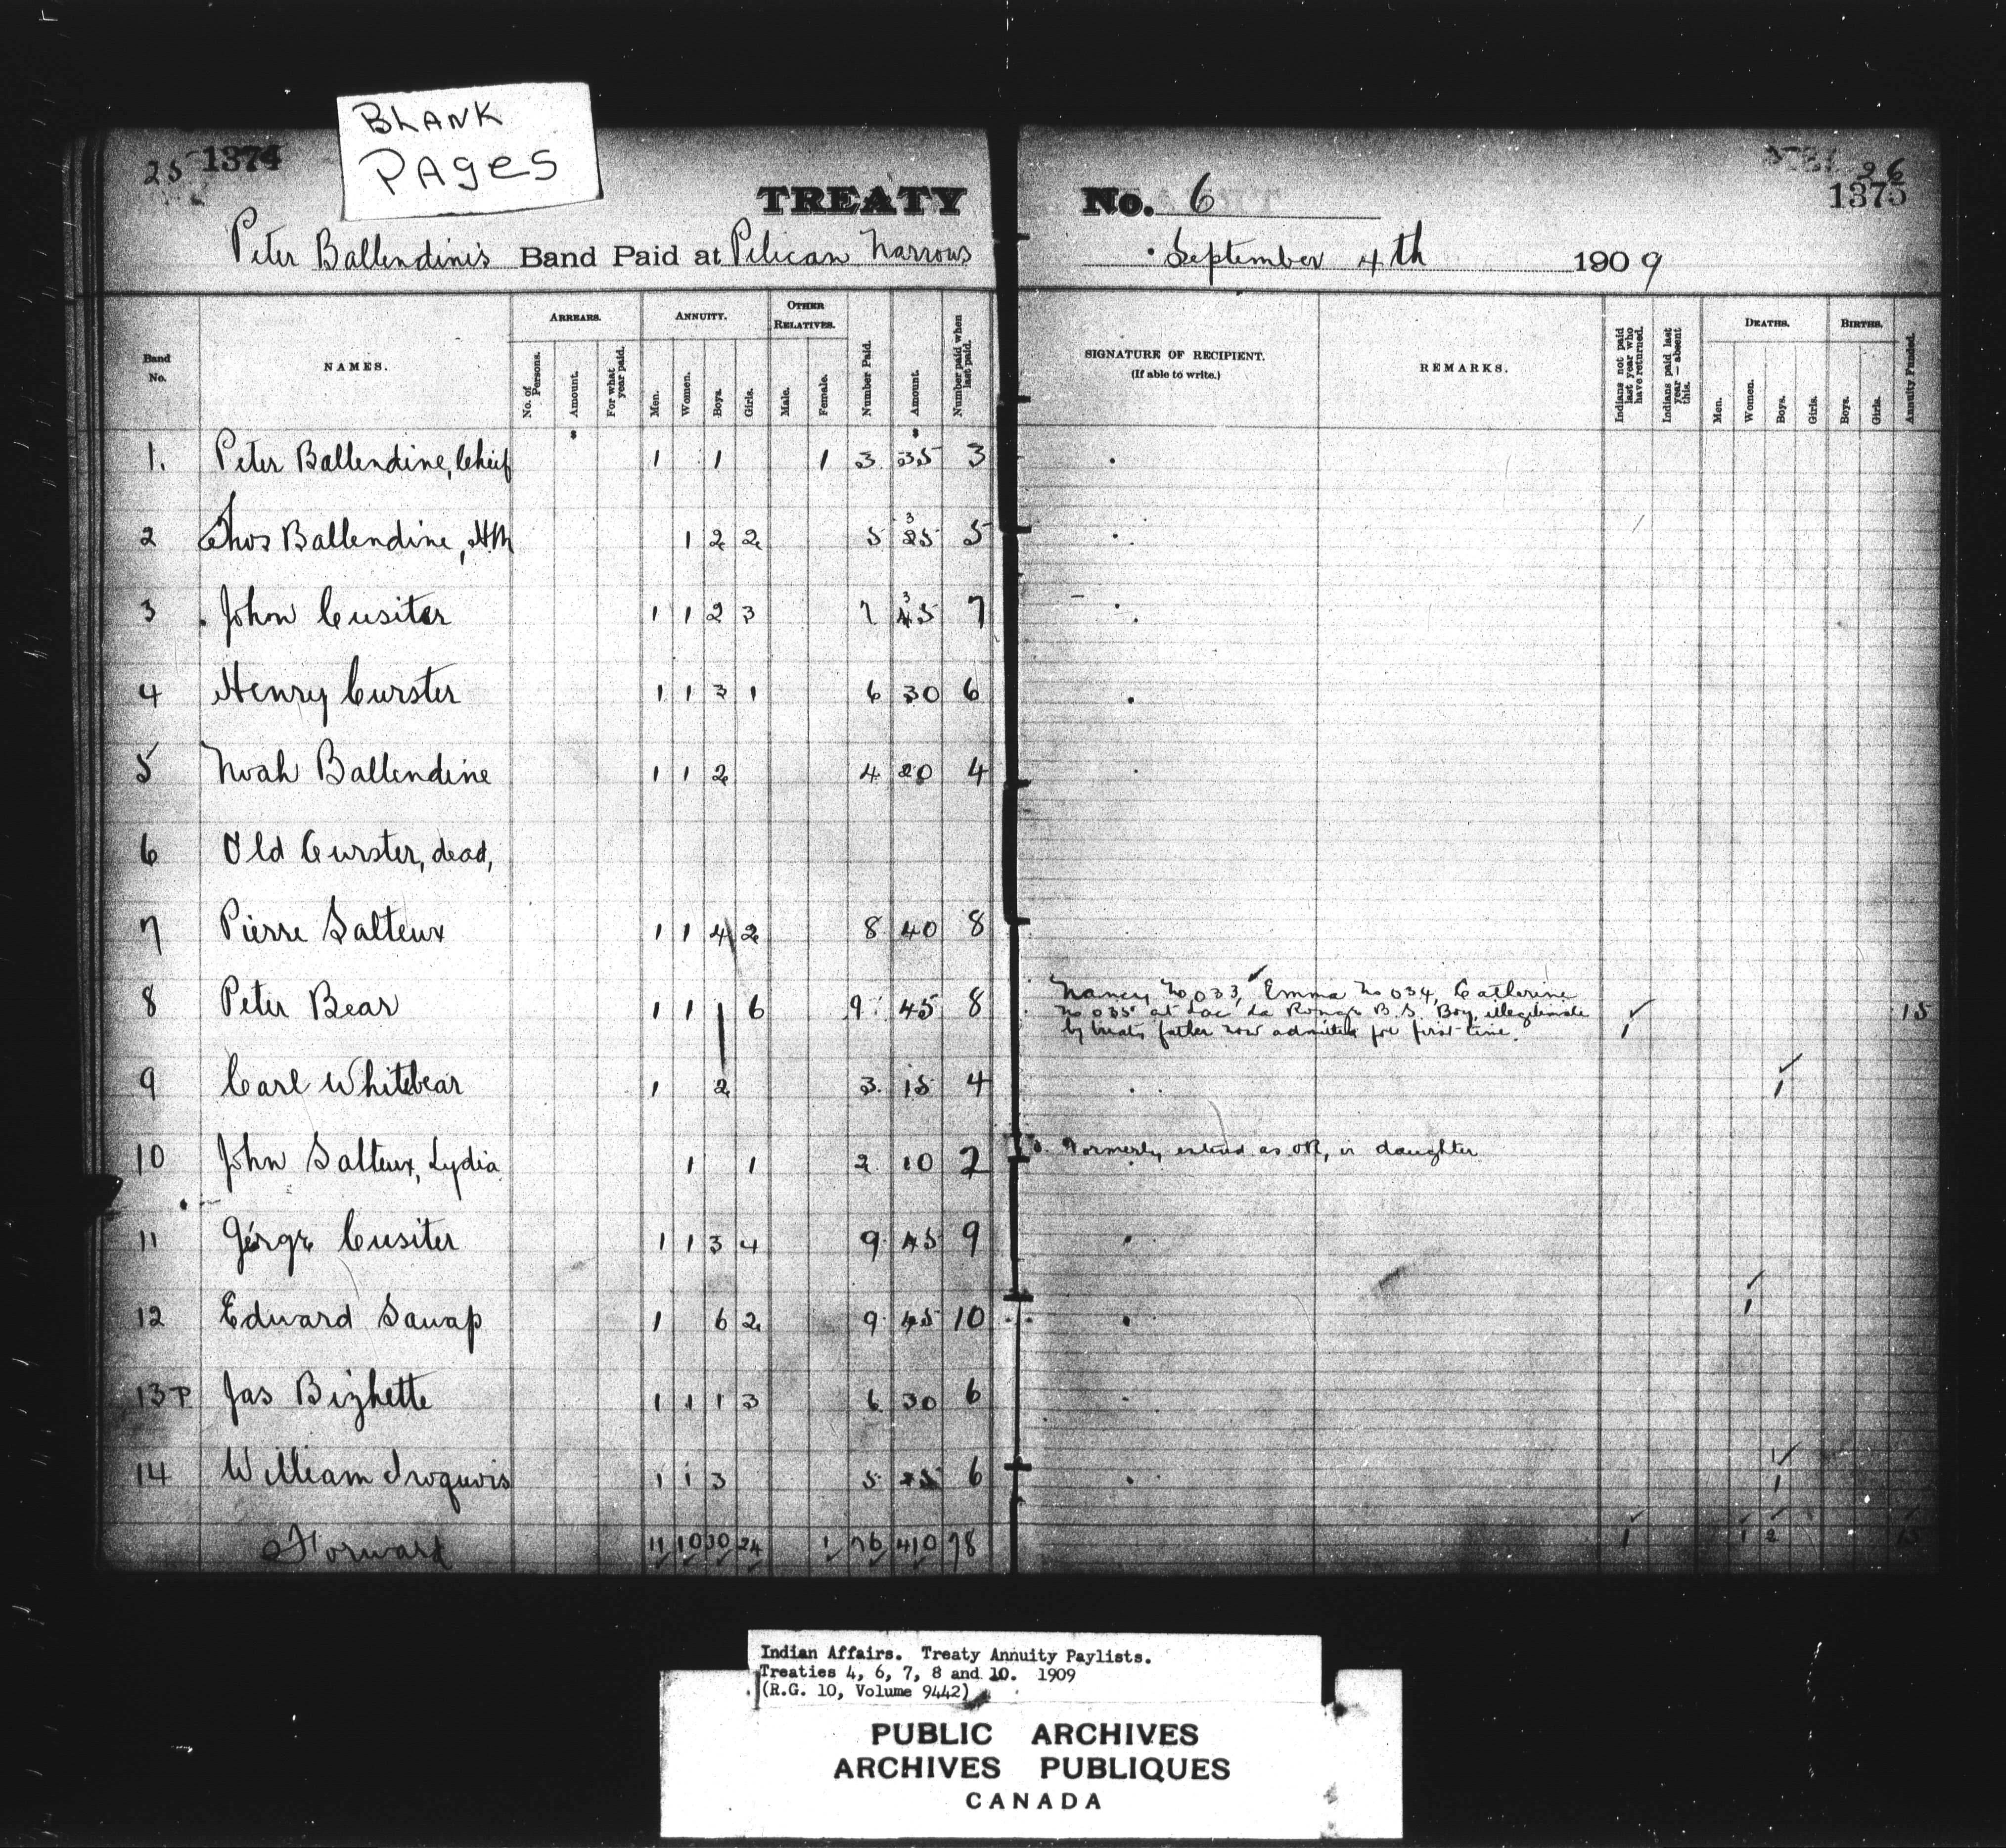 BLANK
PAGES
25 1374
26
1375
TREATY No. 6
Peter Ballendine's Band Paid at Pelican Narrows September 4th 1909
Band No. NAMES. ARREARS. No. of Persons. Amount. For what year paid. ANNUITY. Men. Women. Boys. Girls. OTHER RELATIVES. Male. Female. Number Paid. Amount. Number paid when last paid. SIGNATURE OF RECIPIENT. (If able to write.) REMARKS. Indians not paid last year who have returned. Indians paid last year—absent this. DEATHS. Men. Women. Boys. Girls. BIRTHS. Boys. Girls. Annuity Funded.
1. Peter Ballendine, Chief 1 1 1 3 35 3
2 Thos Ballendine, HM 1 2 2 5 25 5
3 John Cusitar 1 1 2 3 7 35 7
4 Henry Curster 1 1 3 1 6 30 6
5 Noah Ballendine 1 1 2 4 20 4
6 Old Curster, dead,
7 Pierre Salteux 1 1 4 2 8 40 8
8 Peter Bear 1 1 1 6 9 45 8 Nancy No 033, Emma No 034, Catherine
No 035 at Lac La Ronge B.S. Boy, illegitimate 15
by treaty father now admitted for first time. 1
9 Carl Whitebear 1 2 3 15 4 1
10 John Salteux, Lydia 1 1 2 10 2 Formerly entered as OR, is daughter
11 George Cusiter 1 1 3 4 9 45 9
12 Edward Sawap 1 6 2 9 45 10 1
13 P Jas Bizhette 1 1 1 3 6 30 6
14 William Iroquois 1 1 3 5 25 6 1
Forward 11 10 30 24 1 76 410 78 1 1 2 15
Indian Affairs. Treaty Annuity Paylists.
Treaties 4, 6, 7, 8 and 10. 1909
(R.G. 10, Volume 9442)
PUBLIC ARCHIVES
ARCHIVES PUBLIQUES
CANADA